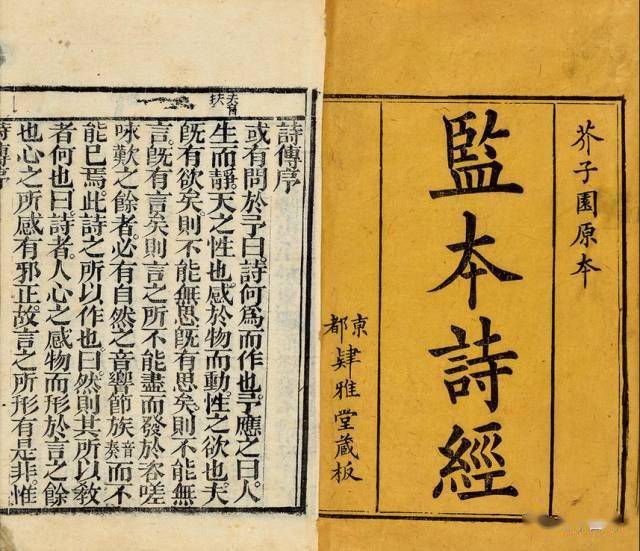 芥子園原本
監本詩經
東都肆雅堂藏板
夫音扶
詩傳序
或有問於予曰詩何爲而作也予應之曰人
生而靜天之性也感於物而動性之欲也夫
既有欲矣則不能無思既有思矣則不能無
言既有言矣則言之所不能盡而發於咨嗟
咏歎之餘者必有自然之音響節族音奏而不
能已焉此詩之所以作也曰然則其所以敎
者何也曰詩者人心之感物而形於言之餘
也心之所感有邪正故言之所形有是非惟
詩傳序